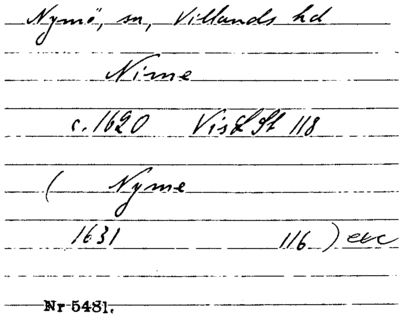 Nymö, sn, Villands hd
Nime
c. 1620 VisLSt 118
( Nyme
1631 116 ) etc
Nr 5481.